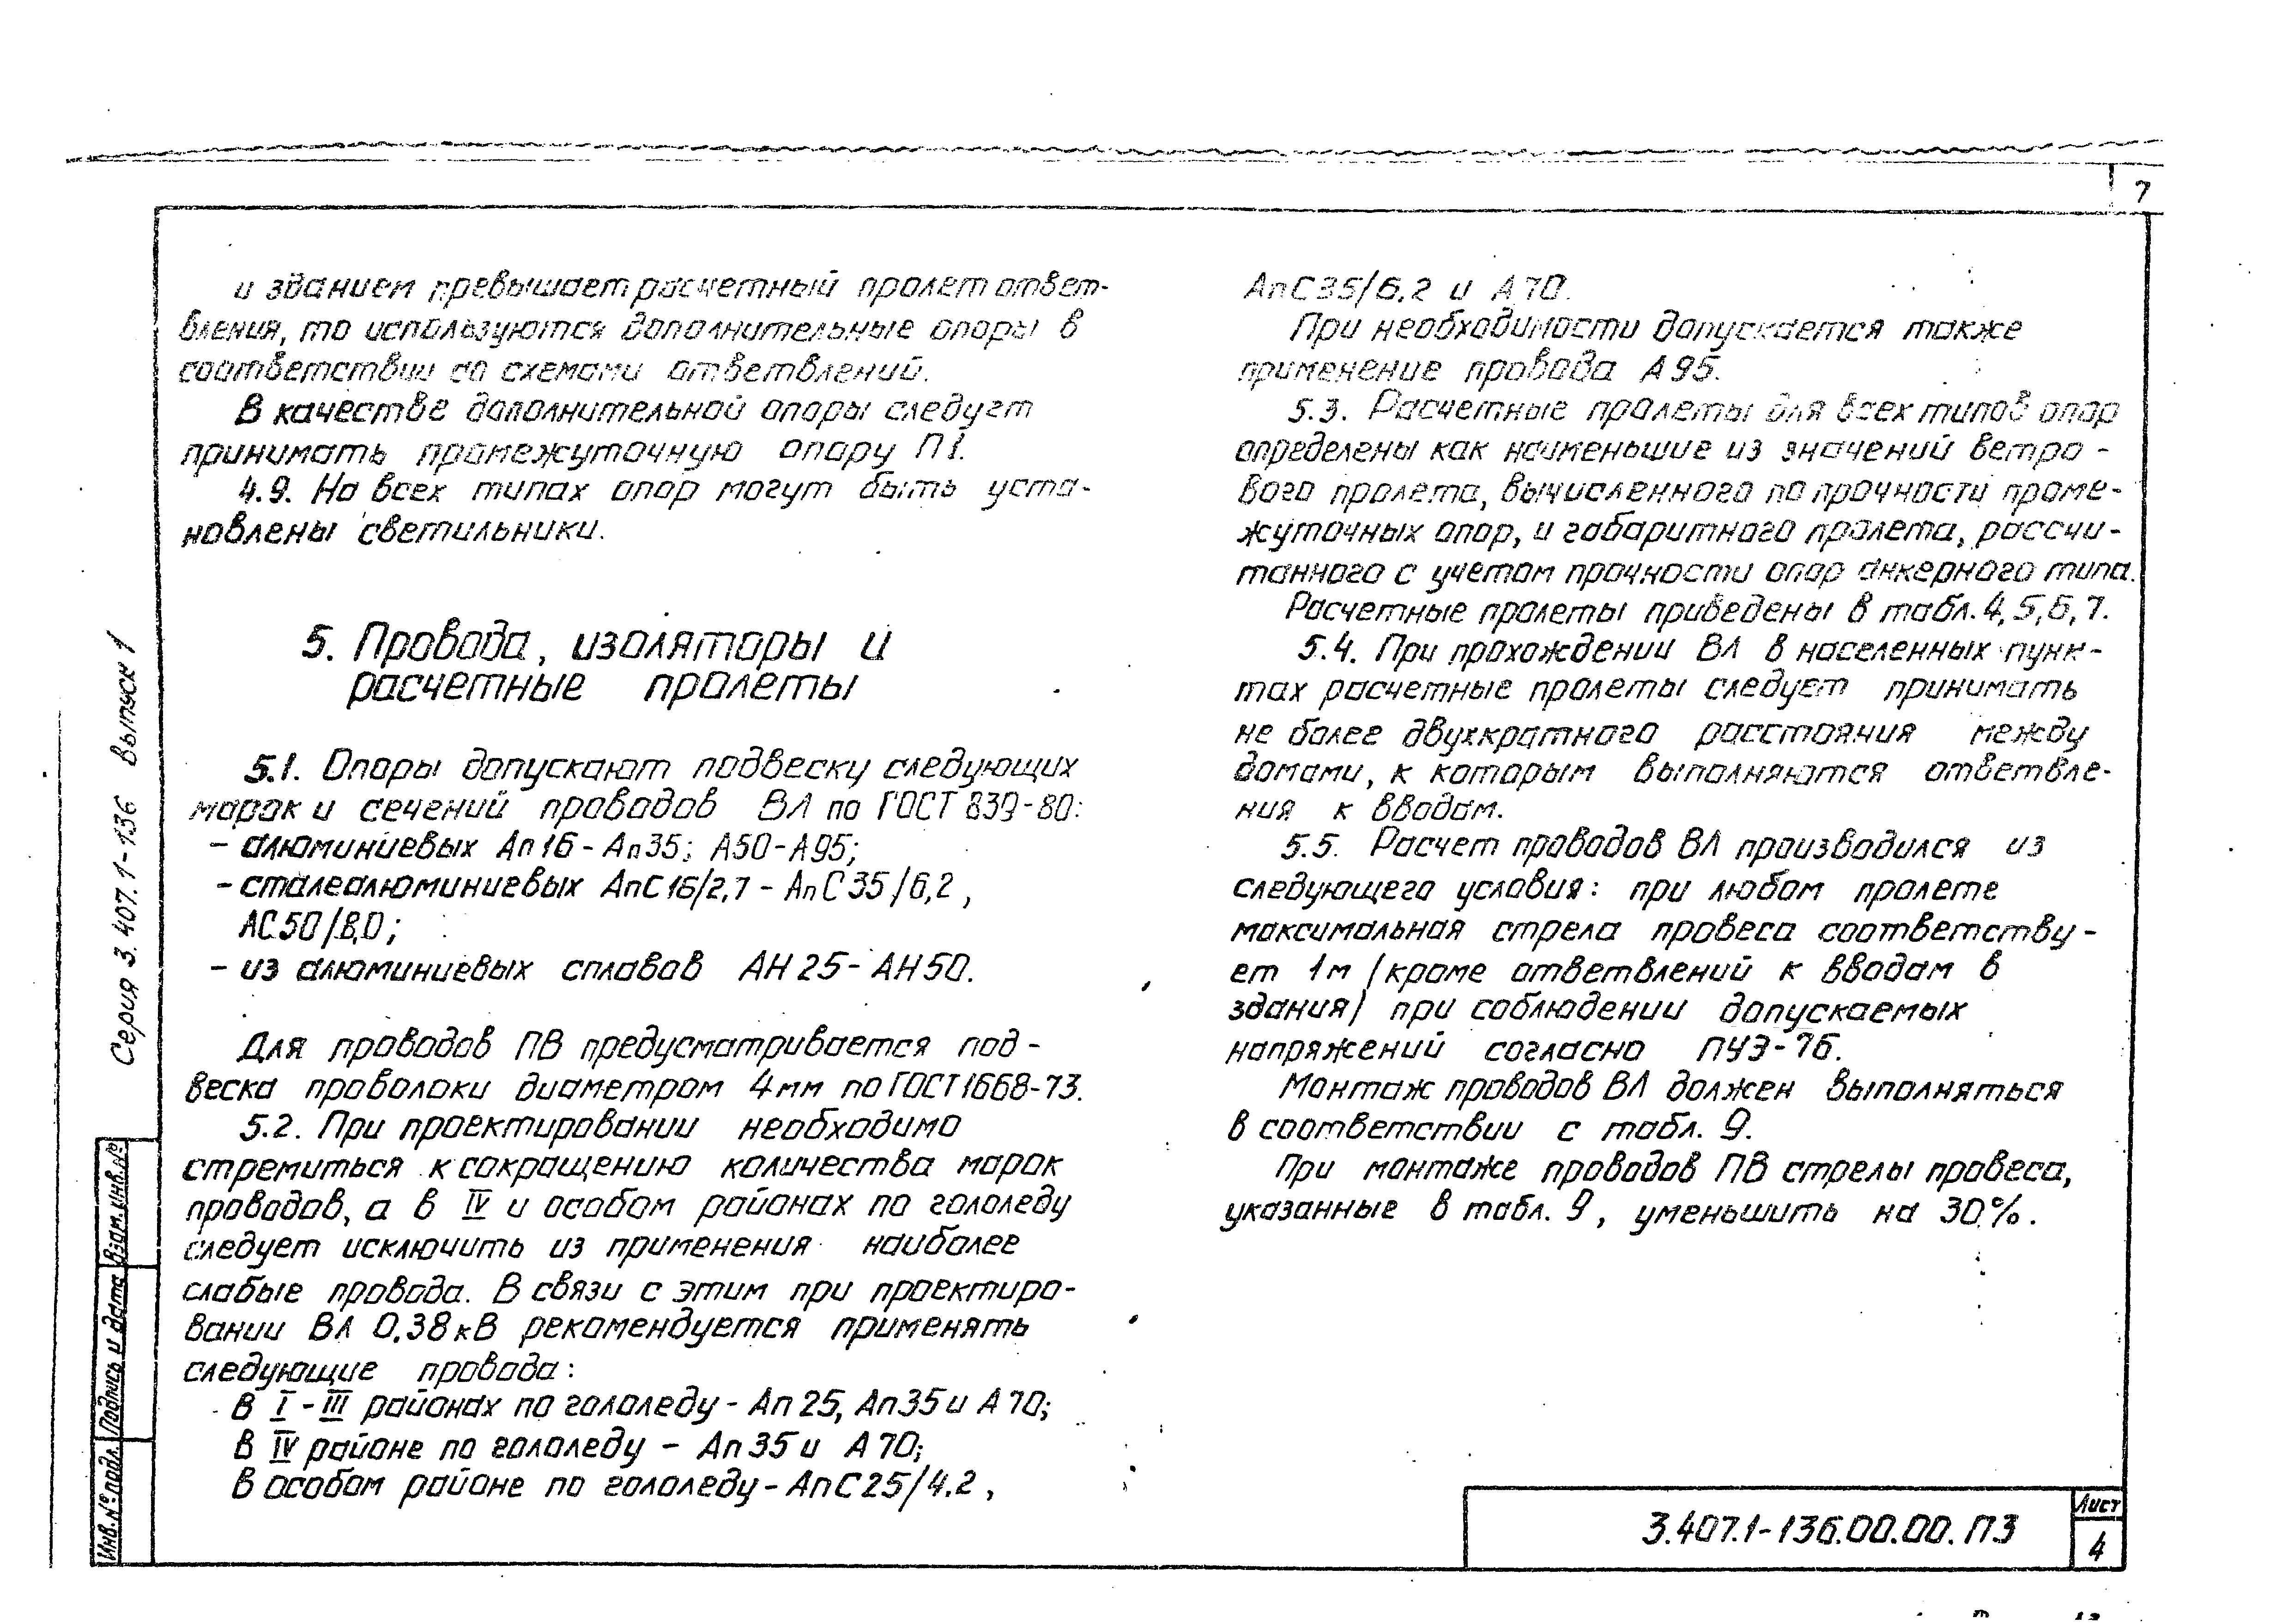 7
и зданием превышает расчетный пролет ответ-
вления, то используются дополнительные опоры в
соответствии со схемами ответвлений.
В качестве дополнительной опоры следует
принимать промежуточную опору П1.
4.9. На всех типах опор могут быть уста-
новлены светильники.
5. Провода, изоляторы и
расчетные пролеты
5.1. Опоры допускают подвеску следующих
марок и сечений проводов ВЛ по ГОСТ 839-80:
- алюминиевых Ап16-Ап35; А50-А95;
- сталеалюминиевых АпС16/2,7 - АпС35/6,2,
АС50/8,0;
- из алюминиевых сплавов АН25-АН50.
Для проводов ПВ предусматривается под-
веска проволоки диаметром 4мм по ГОСТ 1668-73.
5.2. При проектировании необходимо
стремиться к сокращению количества марок
проводов, а в IV и особом районах по гололеду
следует исключить из применения наиболее
слабые провода. В связи с этим при проектиро-
вании ВЛ 0,38кВ рекомендуется применять
следующие провода:
в I-III районах по гололеду - Ап25, Ап35 и А70;
в IV районе по гололеду - Ап35 и А70;
в особом районе по гололеду - АпС25/4.2,
АпС35/6.2 и А70.
При необходимости допускается также
применение провода А95.
5.3. Расчетные пролеты для всех типов опор
определены как наименьшие из значений ветро-
вого пролета, вычисленного по прочности проме-
жуточных опор, и габаритного пролета, рассчи-
танного с учетом прочности опор анкерного типа.
Расчетные пролеты приведены в табл. 4,5,6,7.
5.4. При прохождении ВЛ в населенных пунк-
тах расчетные пролеты следует принимать
не более двухкратного расстояния между
домами, к которым выполняются ответвле-
ния к вводам.
5.5. Расчет проводов ВЛ производился из
следующего условия: при любом пролете
максимальная стрела провеса соответству-
ет 1м /кроме ответвлений к вводам в
здания/ при соблюдении допускаемых
напряжений согласно ПУЭ-76.
Монтаж проводов ВЛ должен выполняться
в соответствии с табл. 9.
При монтаже проводов ПВ стрелы провеса,
указанные в табл. 9, уменьшить на 30%.
Серия 3.407.1-136 Выпуск 1
Инв.№ подл. Подпись и дата Взам.инв.№
3.407.1-136.00.00.ПЗ
Лист
4